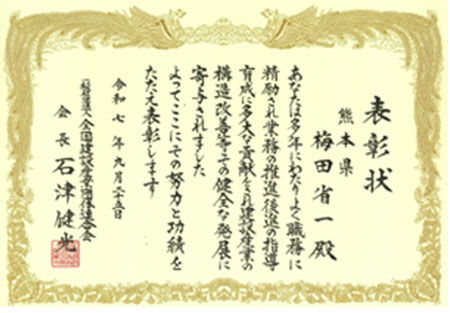 表彰状
熊本県
梅田省一殿
あなたは多年にわたりよく職務に
精励され業務の推進後進の指導
育成に多大な貢献をされ建設産業の
構造改善等その健全な発展に
寄与されました
よってここにその努力と功績を
たたえ表彰します
令和七年九月二十五日
一般社団法人全国建設産業団体連合会
会長 石津健光